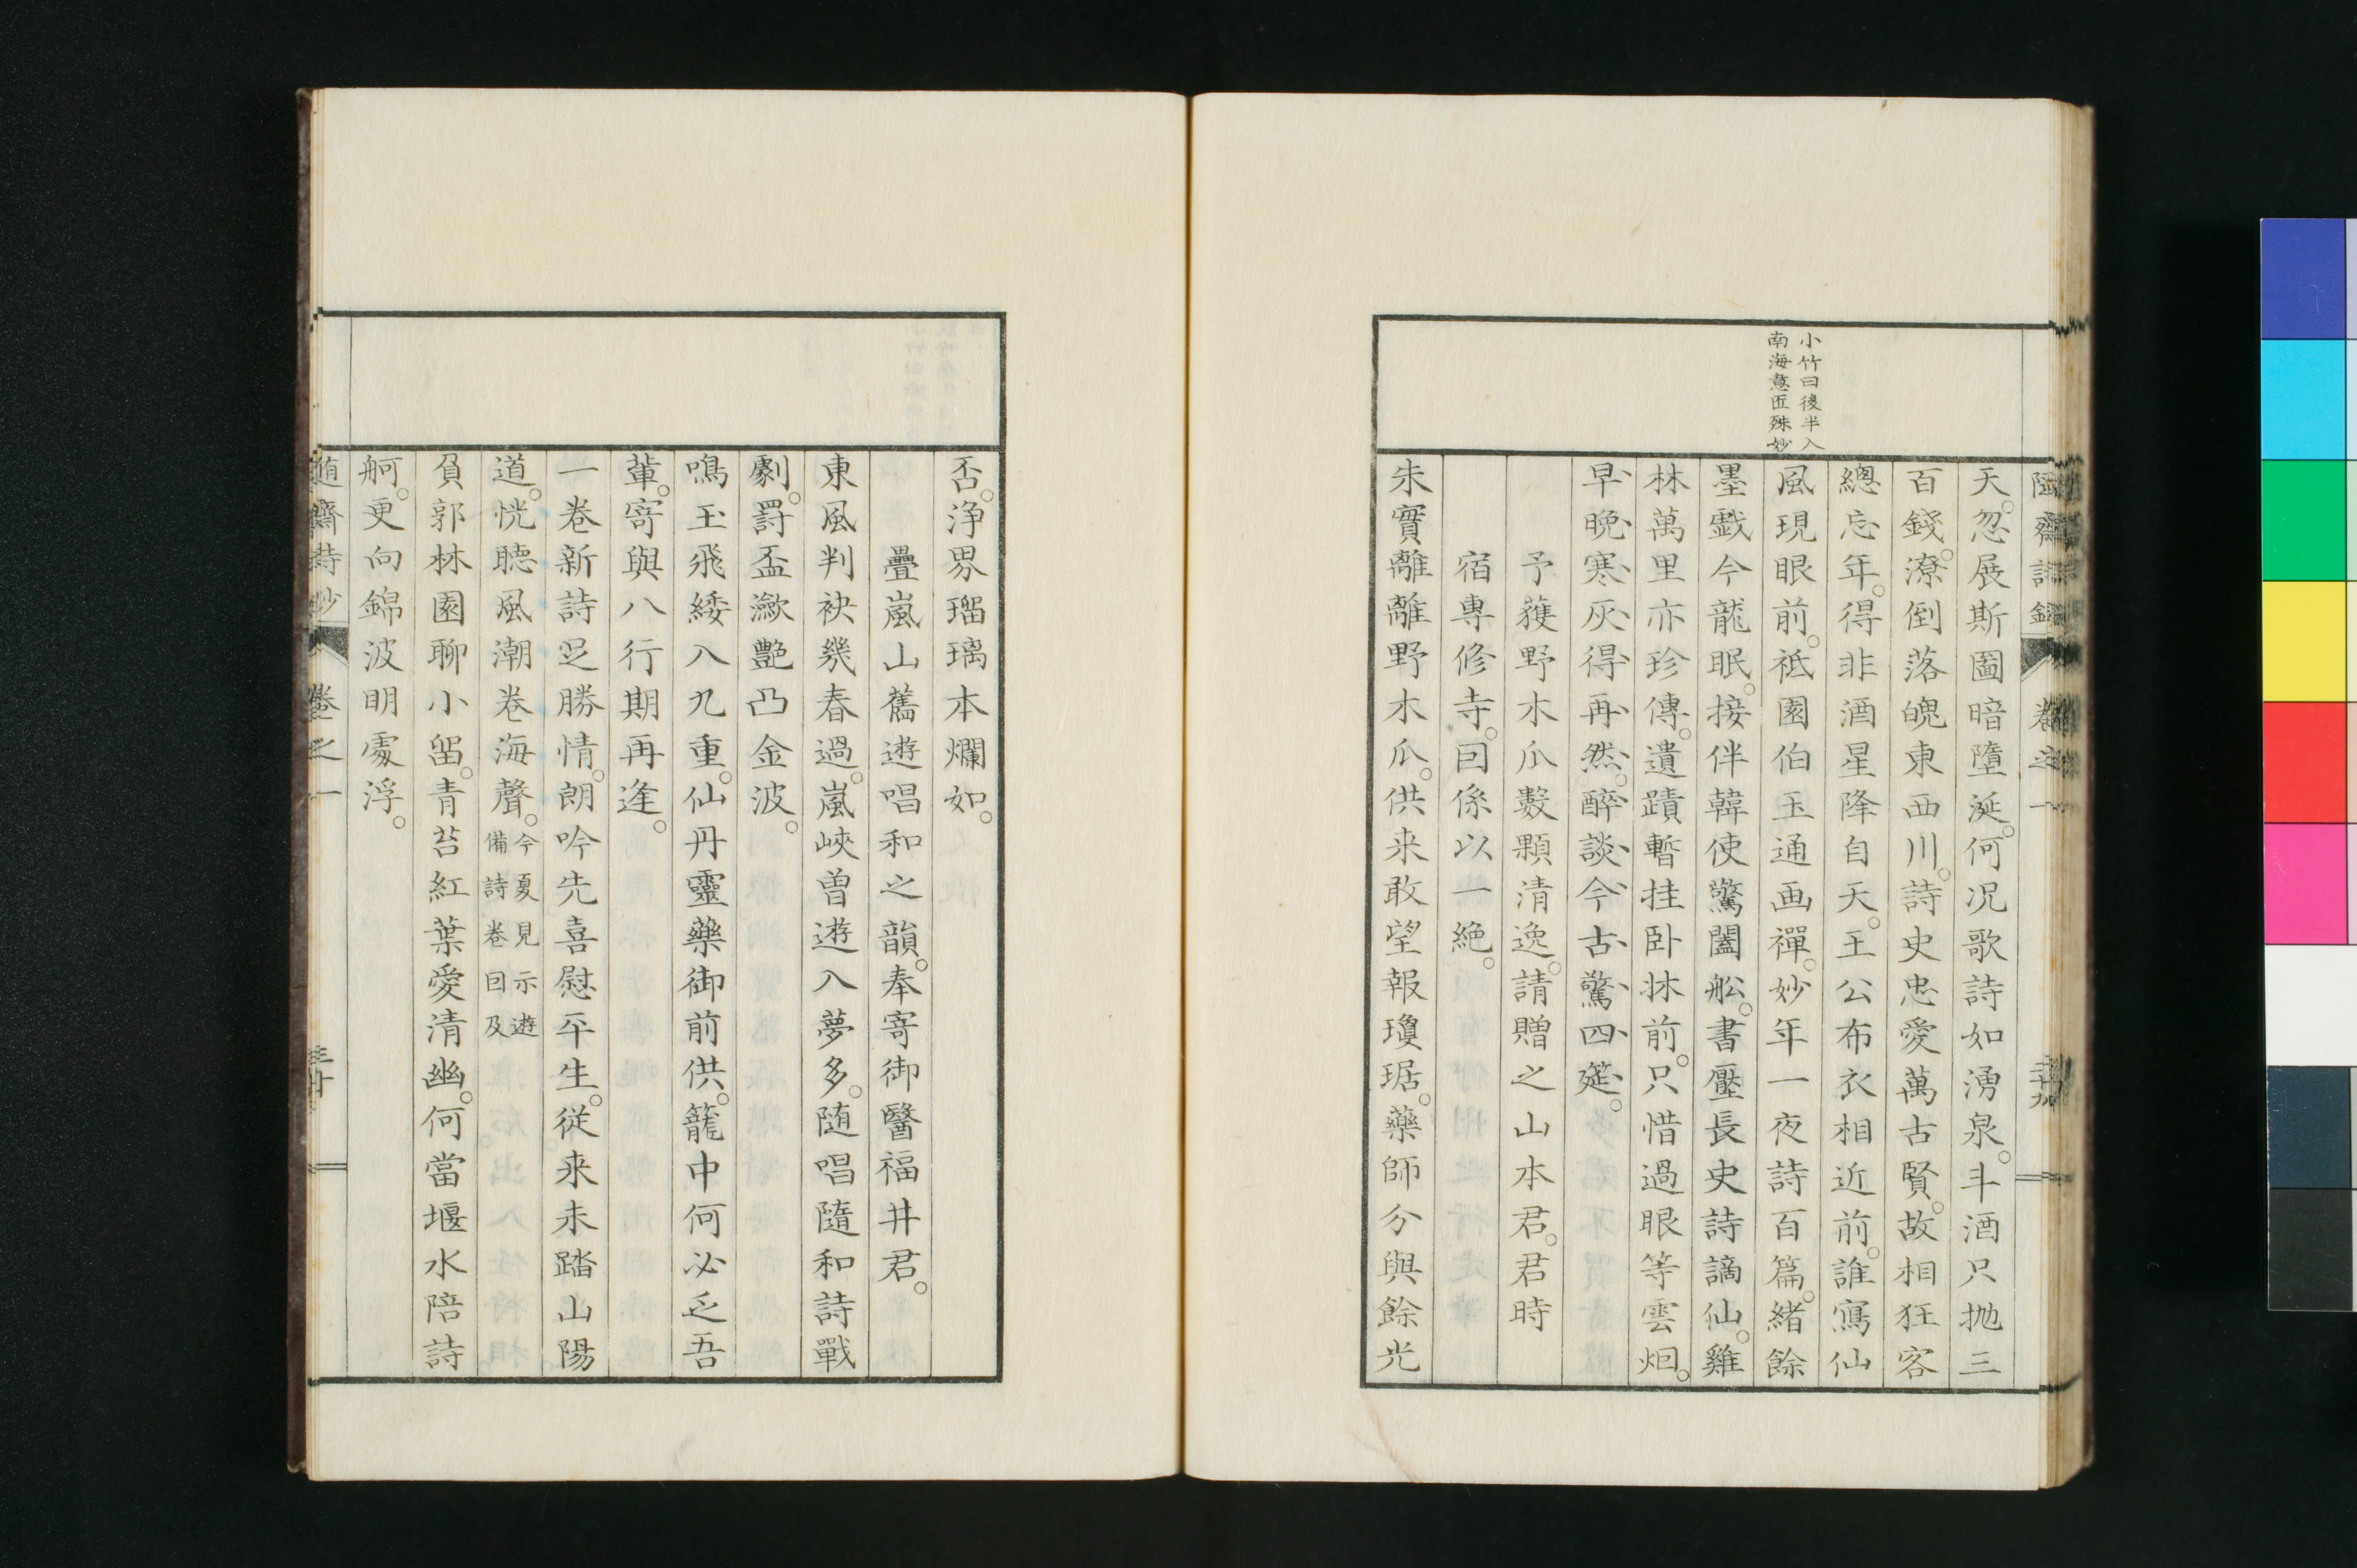 小竹曰後半入
南海慧匠殊妙
天忽展斯圖暗墮涎何况歌詩如湧泉斗酒只抛三
百錢潦倒落魄東西川詩史忠愛萬古賢故相狂客
總忘年得非酒星降自天王公布衣相近前誰寫仙
風現眼前祗園伯玉通画禪妙年一夜詩百篇緒餘
墨戯今龍眠接伴韓使驚闔舩書壓長史詩謫仙雞
林萬里亦珍傳遺蹟暫挂卧牀前只惜過眼等雲烟
早晩寒灰得再然醉談今古驚四筵
予獲野木瓜數顆清逸請贈之山本君君時
宿專修寺囘係以一絶
朱實離離野木瓜供来敢望報瓊琚藥師分與餘光
卷之一
二十九
否浄界瑠璃本爛如
疊嵐山舊遊唱和之韻奉寄御醫福井君
東風判袂幾春過嵐峽曽遊入夢多随唱隨和詩戰
劇罸盃瀲艷凸金波
鳴玉飛緌入九重仙丹靈藥御前供籠中何必乏吾
輩寄與八行期再逢
一卷新詩足勝情朗吟先喜慰平生従来未踏山陽
道恍聴風潮卷海聲今夏見示遊
備詩卷囘及
負郭林園聊小留青苔紅葉愛清幽何當堰水陪詩
舸更向錦波明處浮
齋詩鈔
卷之一
三十